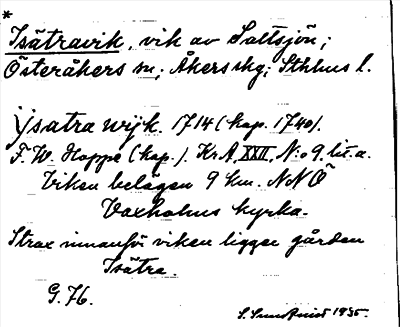 *
Isätravik, vik av Saltsjön;
Österåkers sn; Åkers skg; Sthlms l.
Ysatra wijk. 1714 (kop. 1740).
F. W. Hoppe (kap.). KrA XXII N:o 9. lit. a.
Viken belägen 9 km. NNÖ
Vaxholms kyrka.
Strax innanför viken ligger gården
Isätra.
G. 76.
S. Sundkvist 1935.